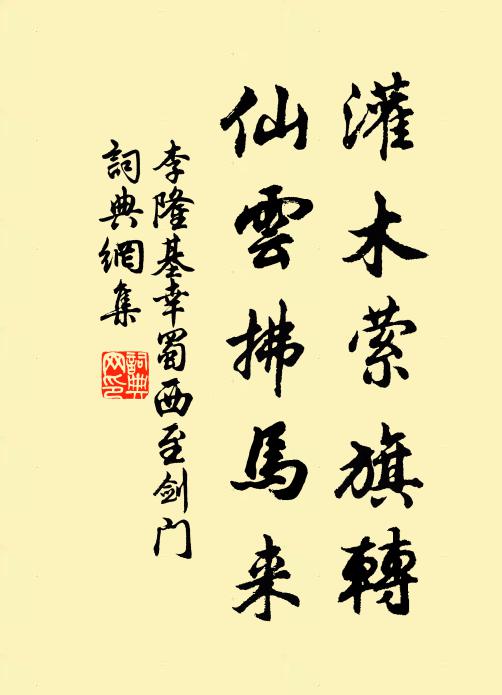 灌木萦旗轉
仙雲拂馬来
李隆基幸蜀西至剑门
詞典網集
詞典
网印